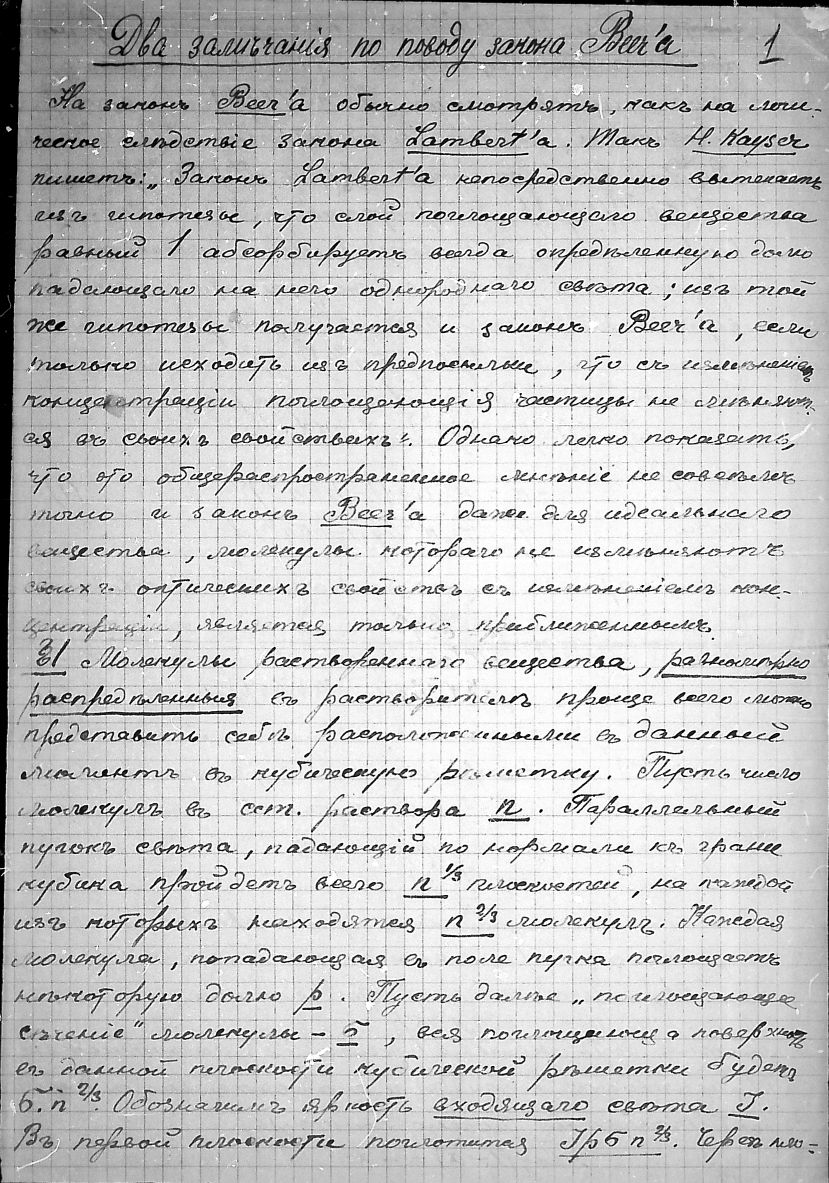 Два замѣчанія по поводу закона Beer'а 1
На законъ Beer'а обычно смотрятъ, какъ на логи-
ческое слѣдствіе закона Lambert'а. Такъ H. Kayser
пишетъ: „Законъ Lambert'а непосредственно вытекаетъ
изъ гипотезы, что слой поглощающаго вещества
равный 1 абсорбируетъ всегда опредѣленную долю
падающаго на него однороднаго свѣта; изъ той
же гипотезы получается и законъ Beer'а, если
только исходить изъ предпосылки, что съ измѣненіемъ
концентраціи поглощающія частицы не мѣняют-
ся въ своихъ свойствахъ". Однако легко показать,
что это общераспространенное мнѣніе не совсѣмъ
точно и законъ Beer'а даже для идеальнаго
вещества, молекулы котораго не измѣняютъ
своихъ оптическихъ свойствъ съ измѣненіемъ кон-
центраціи, является только приближеннымъ.
§1 Молекулы раствореннаго вещества, равномѣрно
распредѣленныя въ растворителѣ проще всего можно
представить себѣ расположенными въ данный
моментъ въ кубическую рѣшетку. Пусть число
молекулъ въ ccm. раствора n. Параллельный
пучокъ свѣта, падающій по нормали къ грани
кубика пройдетъ всего n^1/3 плоскостей, на каждой
изъ которыхъ находятся n^2/3 молекулъ. Каждая
молекула, попадающая въ поле пучка поглощаетъ
нѣкоторую долю p. Пусть далѣе „поглощающее
сѣченіе" молекулы – б, вся поглощающая поверхность
въ данной плоскости кубической рѣшетки будетъ
б.n^2/3. Обозначимъ яркость входящаго свѣта J.
Въ первой плоскости поглотится Jpб n^2/3. Черезъ пло-